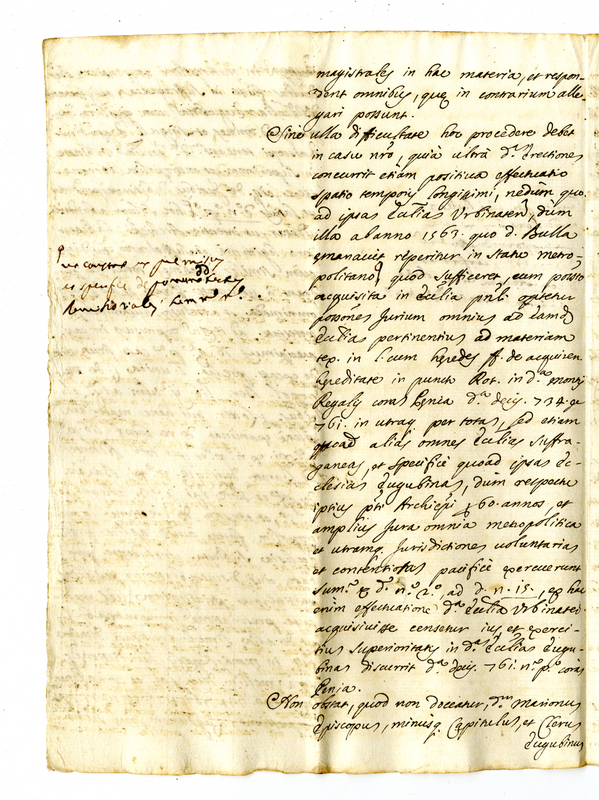 magistrales in hac materia, et respon-
dent omnibus, quæ in contrarium alle-
gari possunt.
Sine ulla difficultate hoc procedere debet
in casu nro, quia ultra d.m Erectiones
concurrit etiam positiva effectuatio
spatio temporis longissimi, nedum quo
ad ipsas Ecclias Urbinaten, dum
illa ab anno 1563. quo d. Bulla
emanavit reperitur in statu metro-
politano, quod sufficeret, cum posso
acquisita in Ecclia pnli operetur
possones Jurium omnius ad eamd
Ecclias pertinentius ad materiam
tex. in l. cum heredes ff. de acquiren.
hereditate in puncto Rot. in d.a montis
Regalis coras Penia d.a decis. 734. et
761. in utraq per totas, sed etiam
quoad alias omnes Ecclias suffra-
ganeas, et specifice quoad ipsas Ec-
clesias Eugubinas, dum respectu
ipsius pti Archiepi 60. annos, et
amplius Jura omnia metropolitica
et utramq. Jurisdictiones voluntarias
et contentiosas pacifice exercuerunt
Sum.o d. n.o 2.o, ad d. n. 15., ex hac
enim effectuatione d.a Ecclia Urbinaten
acquisivisse censetur ius, et exerci-
tius superioritatis in d.a Ecclias Eugu-
binas discurrit d.a decis. 761. n.o p.o coras
Penia.
Non obstat, quod non doceatur, d.m Marionus
Episcopus, minusq. Capitulus, et Clerus
Eugubinus